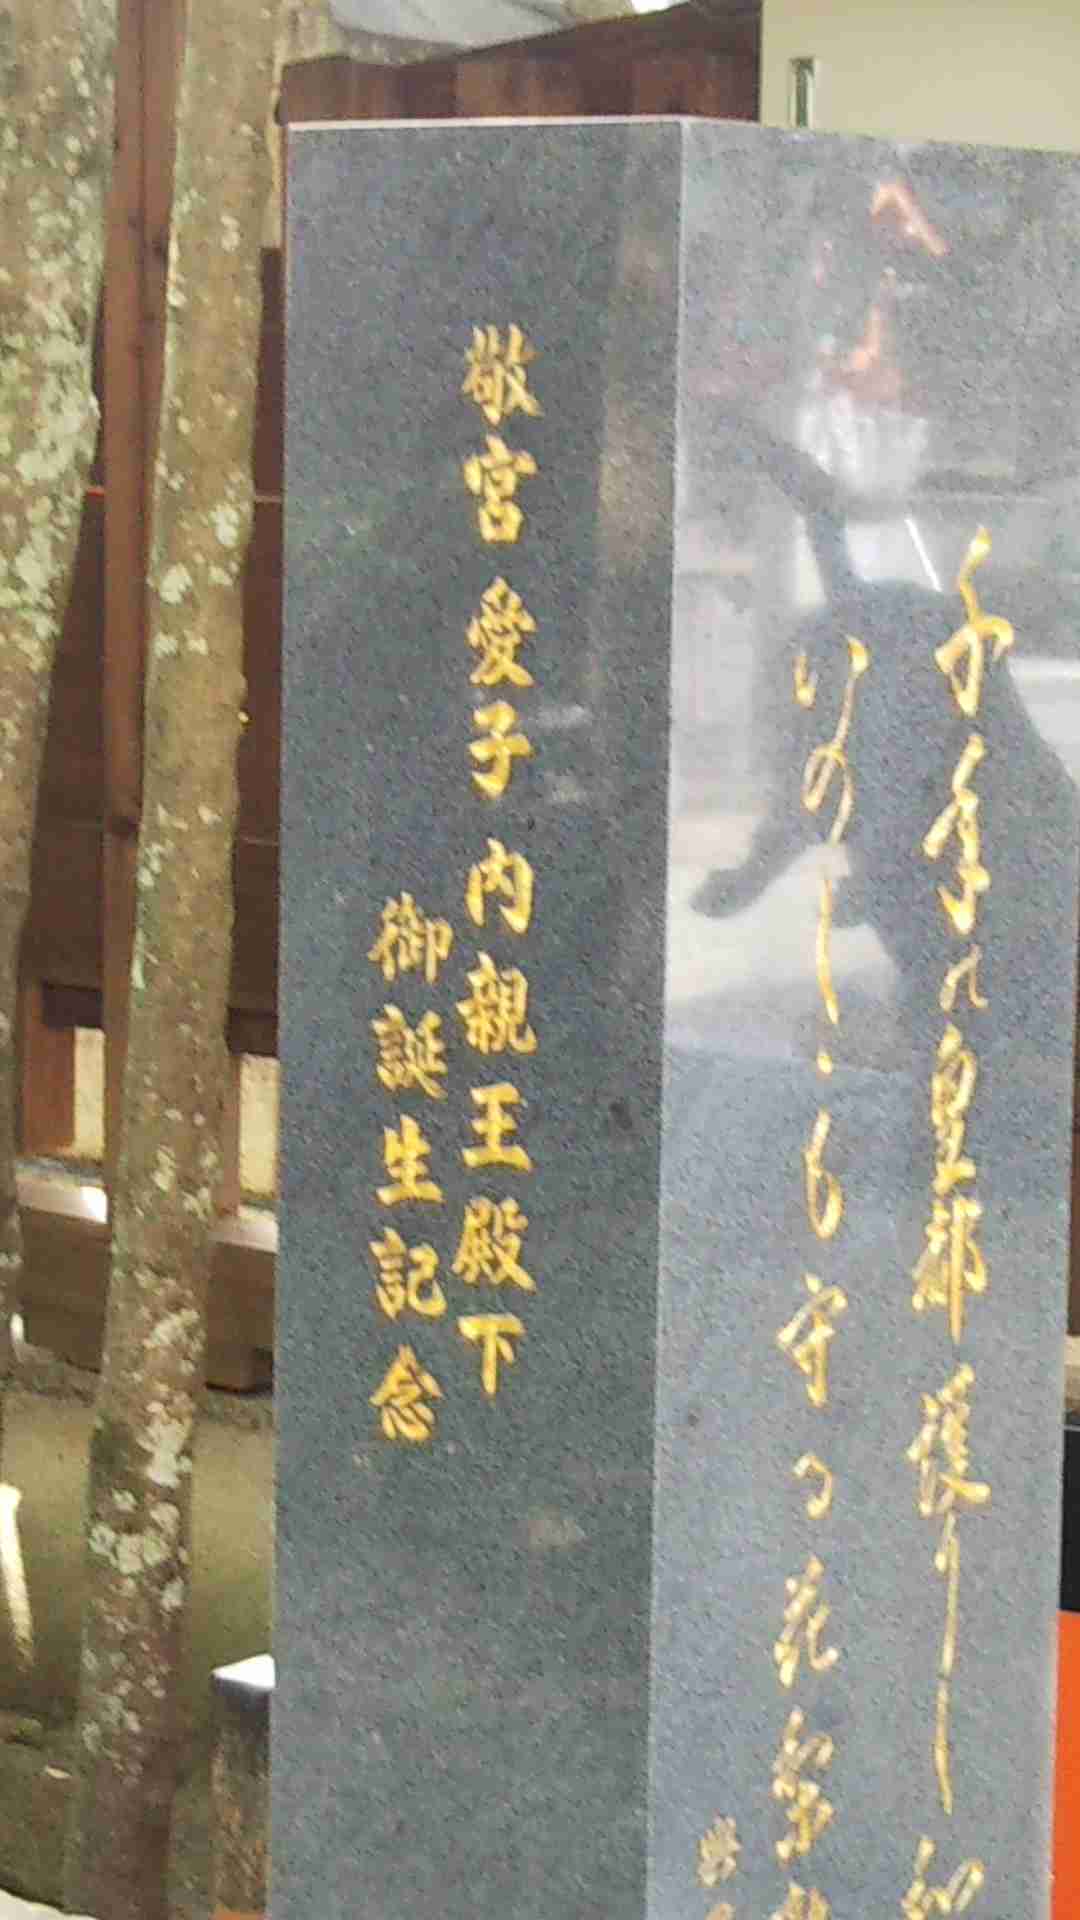 千年の皇都護りし和
いのしゝも守る花
敬宮愛子内親王殿下
御誕生記念